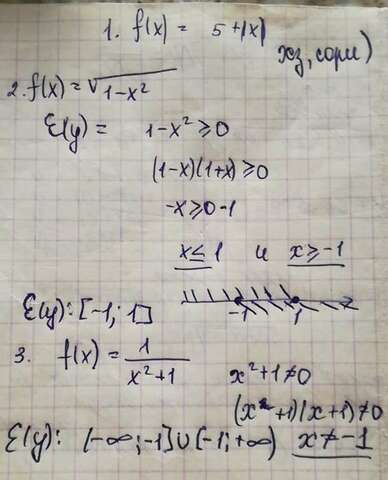 1. f(x) = 5+|x|
хз, сори)
2. f(x) = √1-x²
E(y) = 1-x² ≥ 0
(1-x)(1+x) ≥ 0
-x ≥ 0-1
x ≤ 1 и x ≥ -1
E(y): [-1; 1]
-1 1
3. f(x) = 1/(x²+1)
x²+1 ≠ 0
(x²+1)(x+1) ≠ 0
E(y): (-∞; -1] ∪ (-1; +∞) x ≠ -1